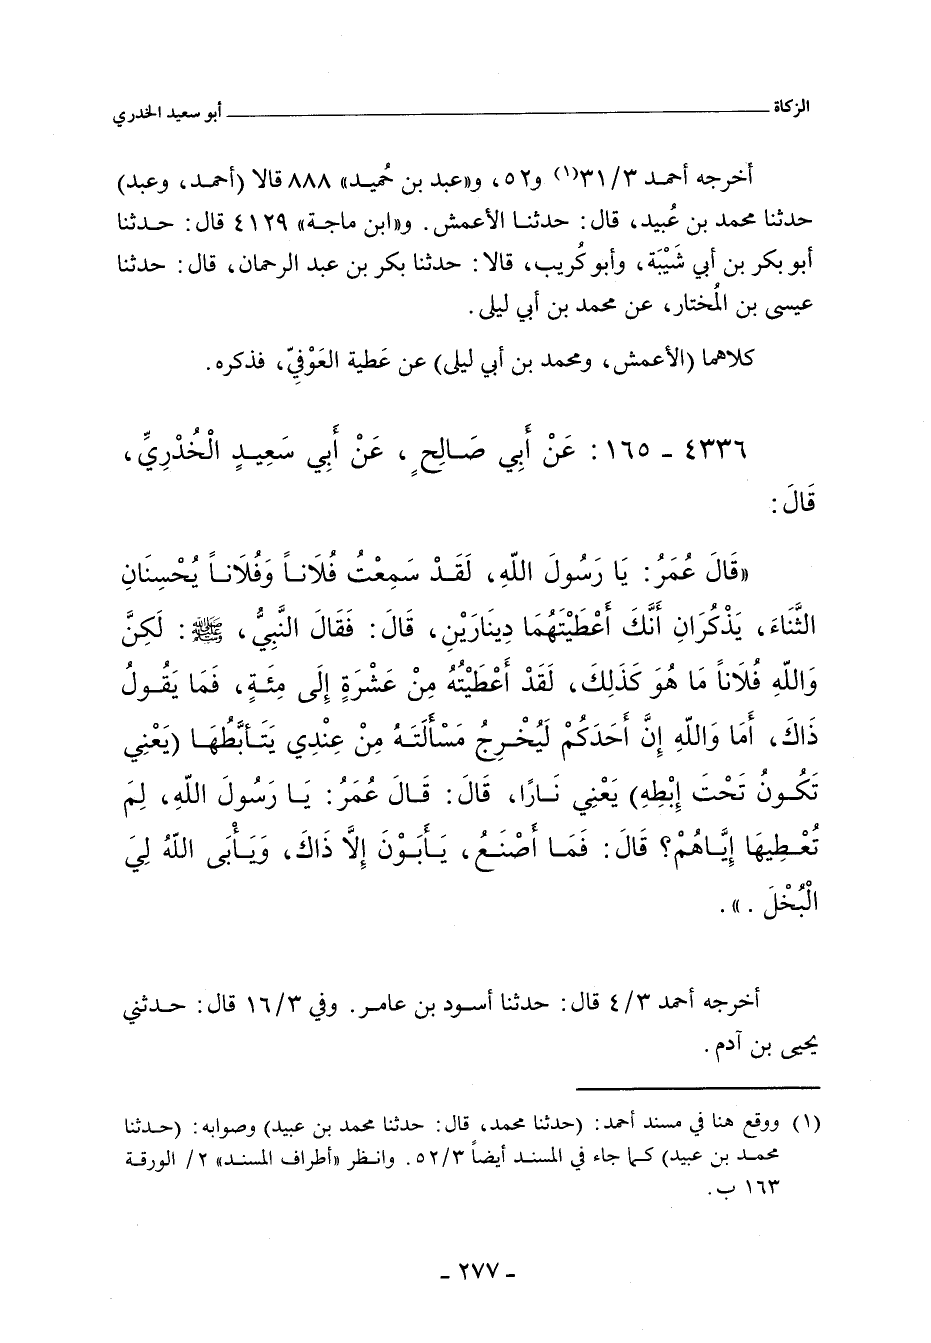 الزكاة ــــــــــــــــــــــــــــــــ أبو سعيد الخدري
أخرجه أحمد ٣١/٣(١) و٥٢، و«عبد بن حُميد» ٨٨٨ قالا (أحمد، وعبد)
حدثنا محمد بن عُبيد، قال: حدثنا الأعمش. و«ابن ماجة» ٤١٢٩ قال: حدثنا
أبو بكر بن أبي شَيْبَة، وأبو كُريب، قالا: حدثنا بكر بن عبد الرحمان، قال: حدثنا
عيسى بن المُختار، عن محمد بن أبي ليلى.
كلاهما (الأعمش، ومحمد بن أبي ليلى) عن عَطية العَوْفِيّ، فذكره.
٤٣٣٦ - ١٦٥: عَنْ أَبِي صَالِحٍ، عَنْ أَبِي سَعِيدٍ الْخُدْرِيِّ،
قَالَ:
«قَالَ عُمَرُ: يَا رَسُولَ اللّهِ، لَقَدْ سَمِعْتُ فُلَاناً وَفُلَاناً يُحْسِنَانِ
الثَّنَاءَ، يَذْكُرَانِ أَنَّكَ أَعْطَيْتَهُمَا دِينَارَيْنِ، قَالَ: فَقَالَ النَّبِيُّ، ﷺ: لَكِنَّ
وَاللّهِ فُلَاناً مَا هُوَ كَذَلِكَ، لَقَدْ أَعْطَيْتُهُ مِنْ عَشْرَةٍ إِلَى مِئَةٍ، فَمَا يَقُولُ
ذَاكَ، أَمَا وَاللّهِ إِنَّ أَحَدَكُمْ لَيُخْرِجُ مَسْأَلَتَهُ مِنْ عِنْدِي يَتَأَبَّطُهَا (يَعْنِي
تَكُونُ تَحْتَ إِبْطِهِ) يَعْنِي نَارًا، قَالَ: قَالَ عُمَرُ: يَا رَسُولَ اللّهِ، لِمَ
تُعْطِيهَا إِيَّاهُمْ؟ قَالَ: فَمَا أَصْنَعُ، يَأْبَوْنَ إِلاَّ ذَاكَ، وَيَأْبَى اللّهُ لِيَ
الْبُخْلَ .».
أخرجه أحمد ٤/٣ قال: حدثنا أسود بن عامر. وفي ١٦/٣ قال: حدثني
يحيى بن آدم.
(١) ووقع هنا في مسند أحمد: (حدثنا محمد، قال: حدثنا محمد بن عبيد) وصوابه: (حدثنا
محمد بن عبيد) كما جاء في المسند أيضاً ٥٢/٣. وانظر «أطراف المسند» ٢/ الورقة
١٦٣ ب.
- ٢٧٧ -